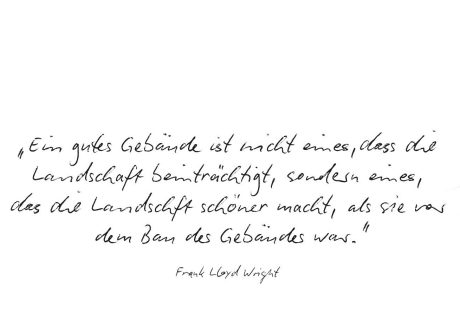 „Ein gutes Gebäude ist nicht eines, dass die
Landschaft beinträchtigt, sondern eines,
das die Landschft schöner macht, als sie vor
dem Bau des Gebäudes war.“
Frank Lloyd Wright